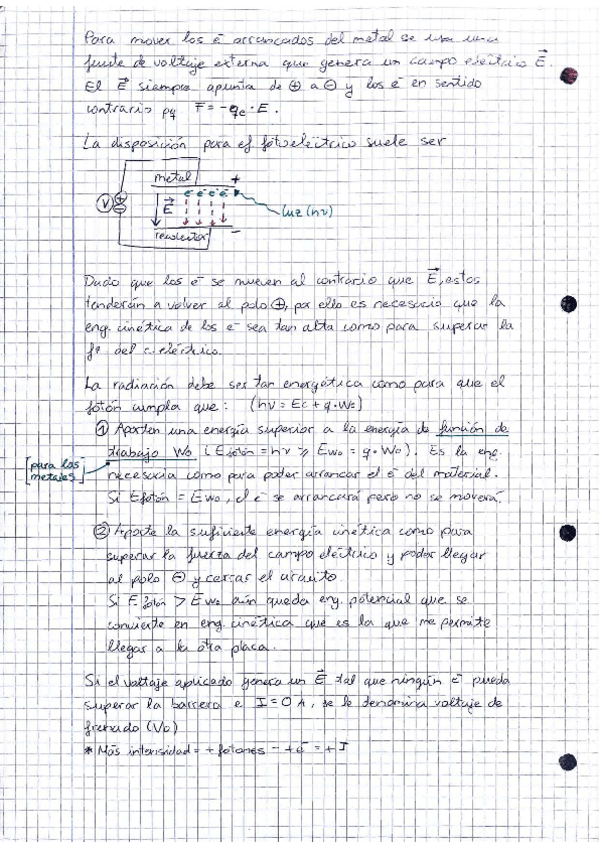 Para mover los e⁻ arrancados del metal se usa una
fuente de voltaje externa que genera un campo eléctrico E⃗.
El E⃗ siempre apunta de ⊕ a ⊖ y los e⁻ en sentido
contrario pq F = -qe · E.
La disposición para ef fotoeléctrico suele ser
metal +
e⁻ e⁻ e⁻ e⁻
V ⊕ ⊖ E⃗ Luz (hν)
recolector -
Dado que los e⁻ se mueven al contrario que E⃗, estos
tenderán a volver al polo ⊕, por ello es necesario que la
eng. cinética de los e⁻ sea tan alta como para superar la
fª del c. eléctrico.
La radiación debe ser tan energética como para que el
fotón cumpla que: (hν = Ec + q·Wo)
① Aporten una energía superior a la energía de función de
trabajo Wo (Efotón = h·ν ≥ Ewo = q·Wo). Es la eng.
[para los metales]
necesaria como para poder arrancar el e⁻ del material.
Si Efotón = Ewo, el e⁻ se arrancará pero no se moverá.
② Aporte la suficiente energía cinética como para
superar la fuerza del campo eléctrico y poder llegar
al polo ⊖ y cerrar el circuito.
Si Efotón > Ewo aún queda eng. potencial que se
convierte en eng. cinética que es la que me permite
llegar a la otra placa.
Si el voltaje aplicado genera un E⃗ tal que ningún e⁻ pueda
superar la barrera e I = 0 A, se le denomina voltaje de
frenado (Vo)
* Más intensidad = + fotones - + e⁻ = + I